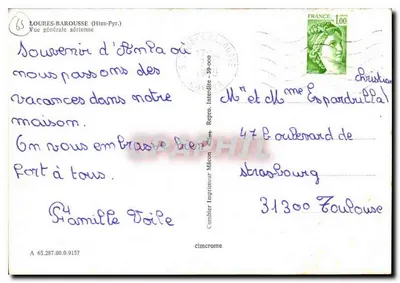 65
LOURES-BAROUSSE (Htes-Pyr.)
Vue générale aérienne
FRANCE
1,00
Souvenir d'Anla où
nous passons des
vacances dans notre
maison.
On vous embrasse bien
fort à tous.
Famille Voile
christian
Mr et Mme
47 boulevard de
strasbourg
31300 Toulouse
Combier Imprimeur Mâcon
Reprod. Interdite
A 65.287.00.0.9157
cimcrome
PHIL